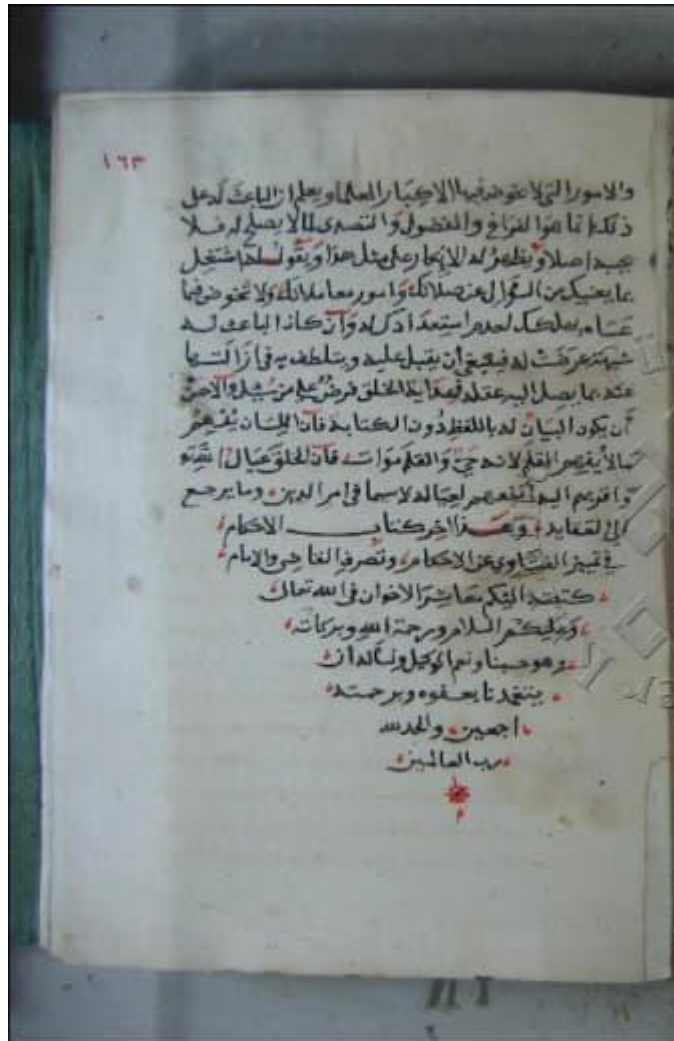 ١٦٣
والامور التى لا يخوض فيها الا كبار العلما ويعلم ان الباعث له على
ذلك انما هو الفراغ والفضول والتصدى لما لا يصلح له فلا
يجيبه اصلا ويظهر له الانكار على مثل هذا ويقول له اشتغل
بما يعنيك من السؤال عن صلاتك وامور معاملاتك ولا تخوض فيما
عساه يهلكك لعدم استعدادك له وان كان الباعث له
شبهة عرضت له فينبغى ان يقبل عليه ويتلطف به فى ازالتها
عنه بما يصل اليه عقله فهداية الخلق فرض على من سئل والاحسن
أن يكون البيان له باللفظ دون الكتابة فان اللسان يفهم
مالا يفهم القلم لانه حي والقلم موات فان الخلق عيال الله
واقربهم اليه انفعهم لعياله لاسيما فى امر الدين وما يرجع
الى العقايد وهذا اخر كتاب الاحكام
في تمييز الفتاوى عن الاحكام وتصرف القاضى والامام
كتبته اليكم معاشر الاخوان فى الله تعالى
وعليكم السلام ورحمة الله وبركاته
وهو حسبنا ونعم الوكيل ونساله أن
يتغمدنا بعفوه وبرحمته
اجمعين والحمد لله
رب العالمين
م